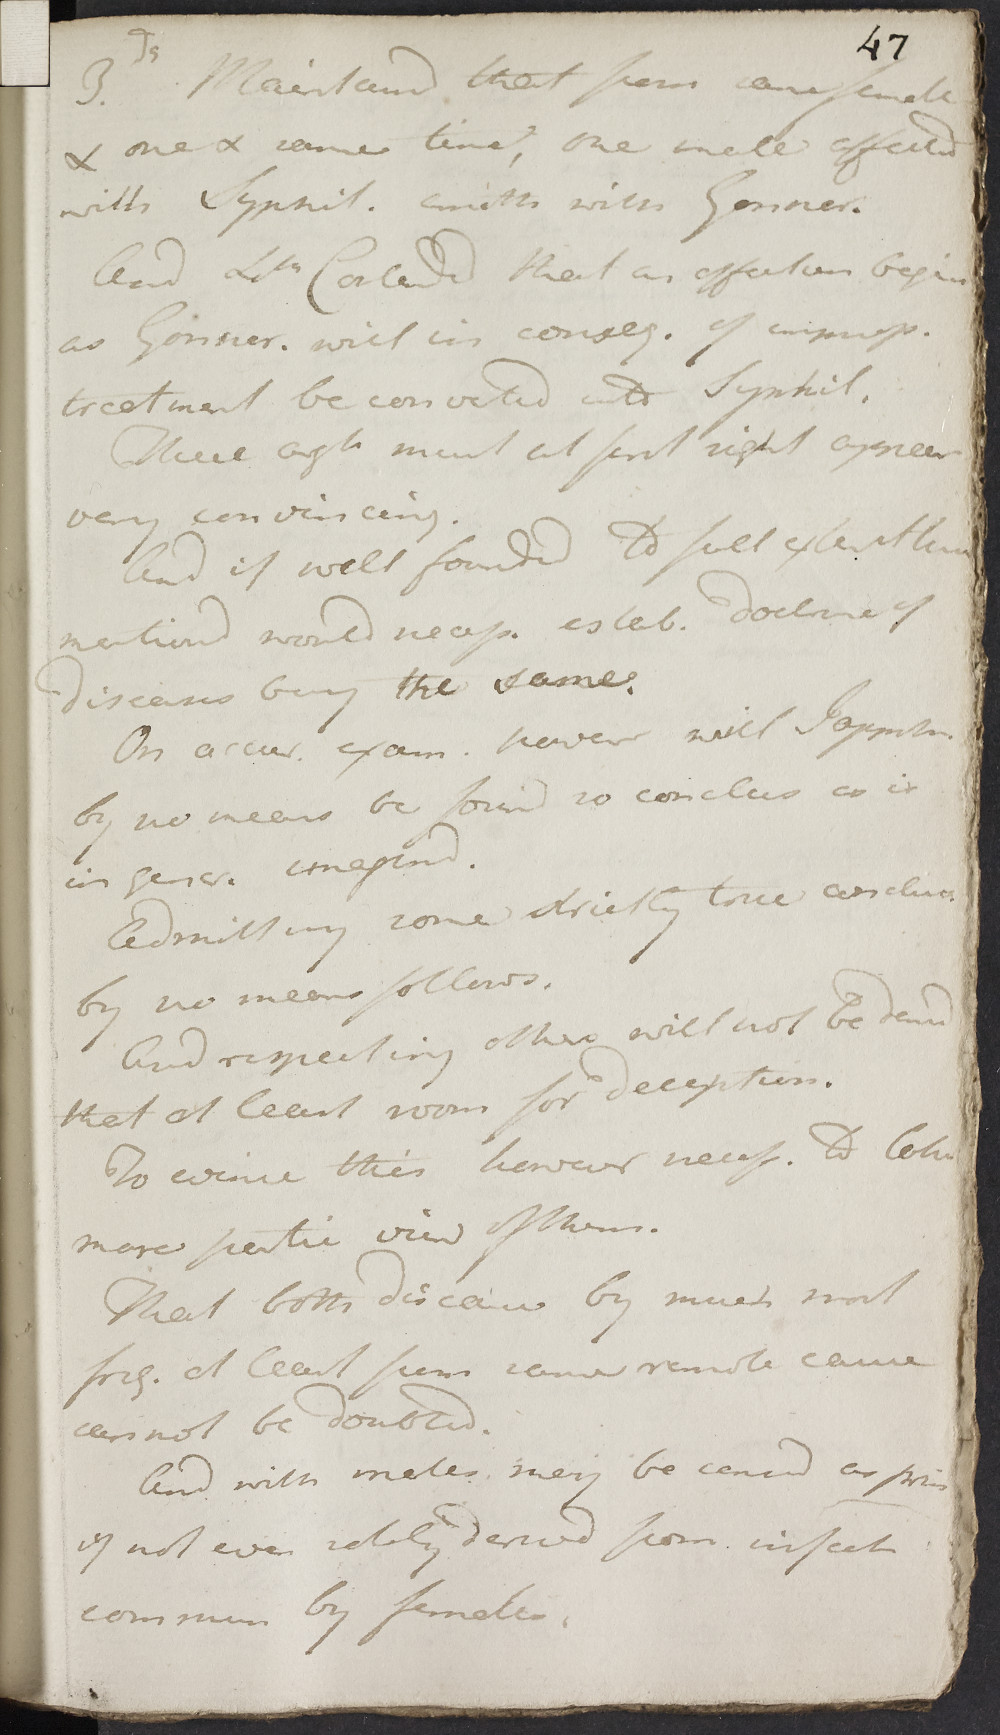 47
3.ds Maintaind that from same female
& one & same time, one male affected
with Syphil. anoth with Gonner.
And 4th Contend that an affection begin
as Gonner. will in conseq. of improp.
treatment be converted into Syphil.
These argts must at first sight appear
very convincing.
And if well founded to full extent here
mentiond would necess. estab. doctrine of
diseases being the same.
On accur. exam. howevr will I apprehn.
by no means be found so conclus as is
in gener. imagind.
Admitting some strictly true conclus.
by no means follows.
And respecting others will not be denid
that at least room for deception.
To evince this however necess. to take
more partic view of them.
That both diseases by much most
freq. at least from same remote cause
cannot be doubted.
And with males may be consid as prin
if not even solely derived from infect
commun by females.